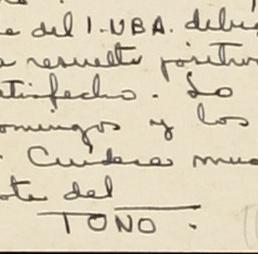 del I.UBA. debi
resuelto positivo
atisfecho. Lo
omingos y los
Cuidese muc
ote del
TONO.